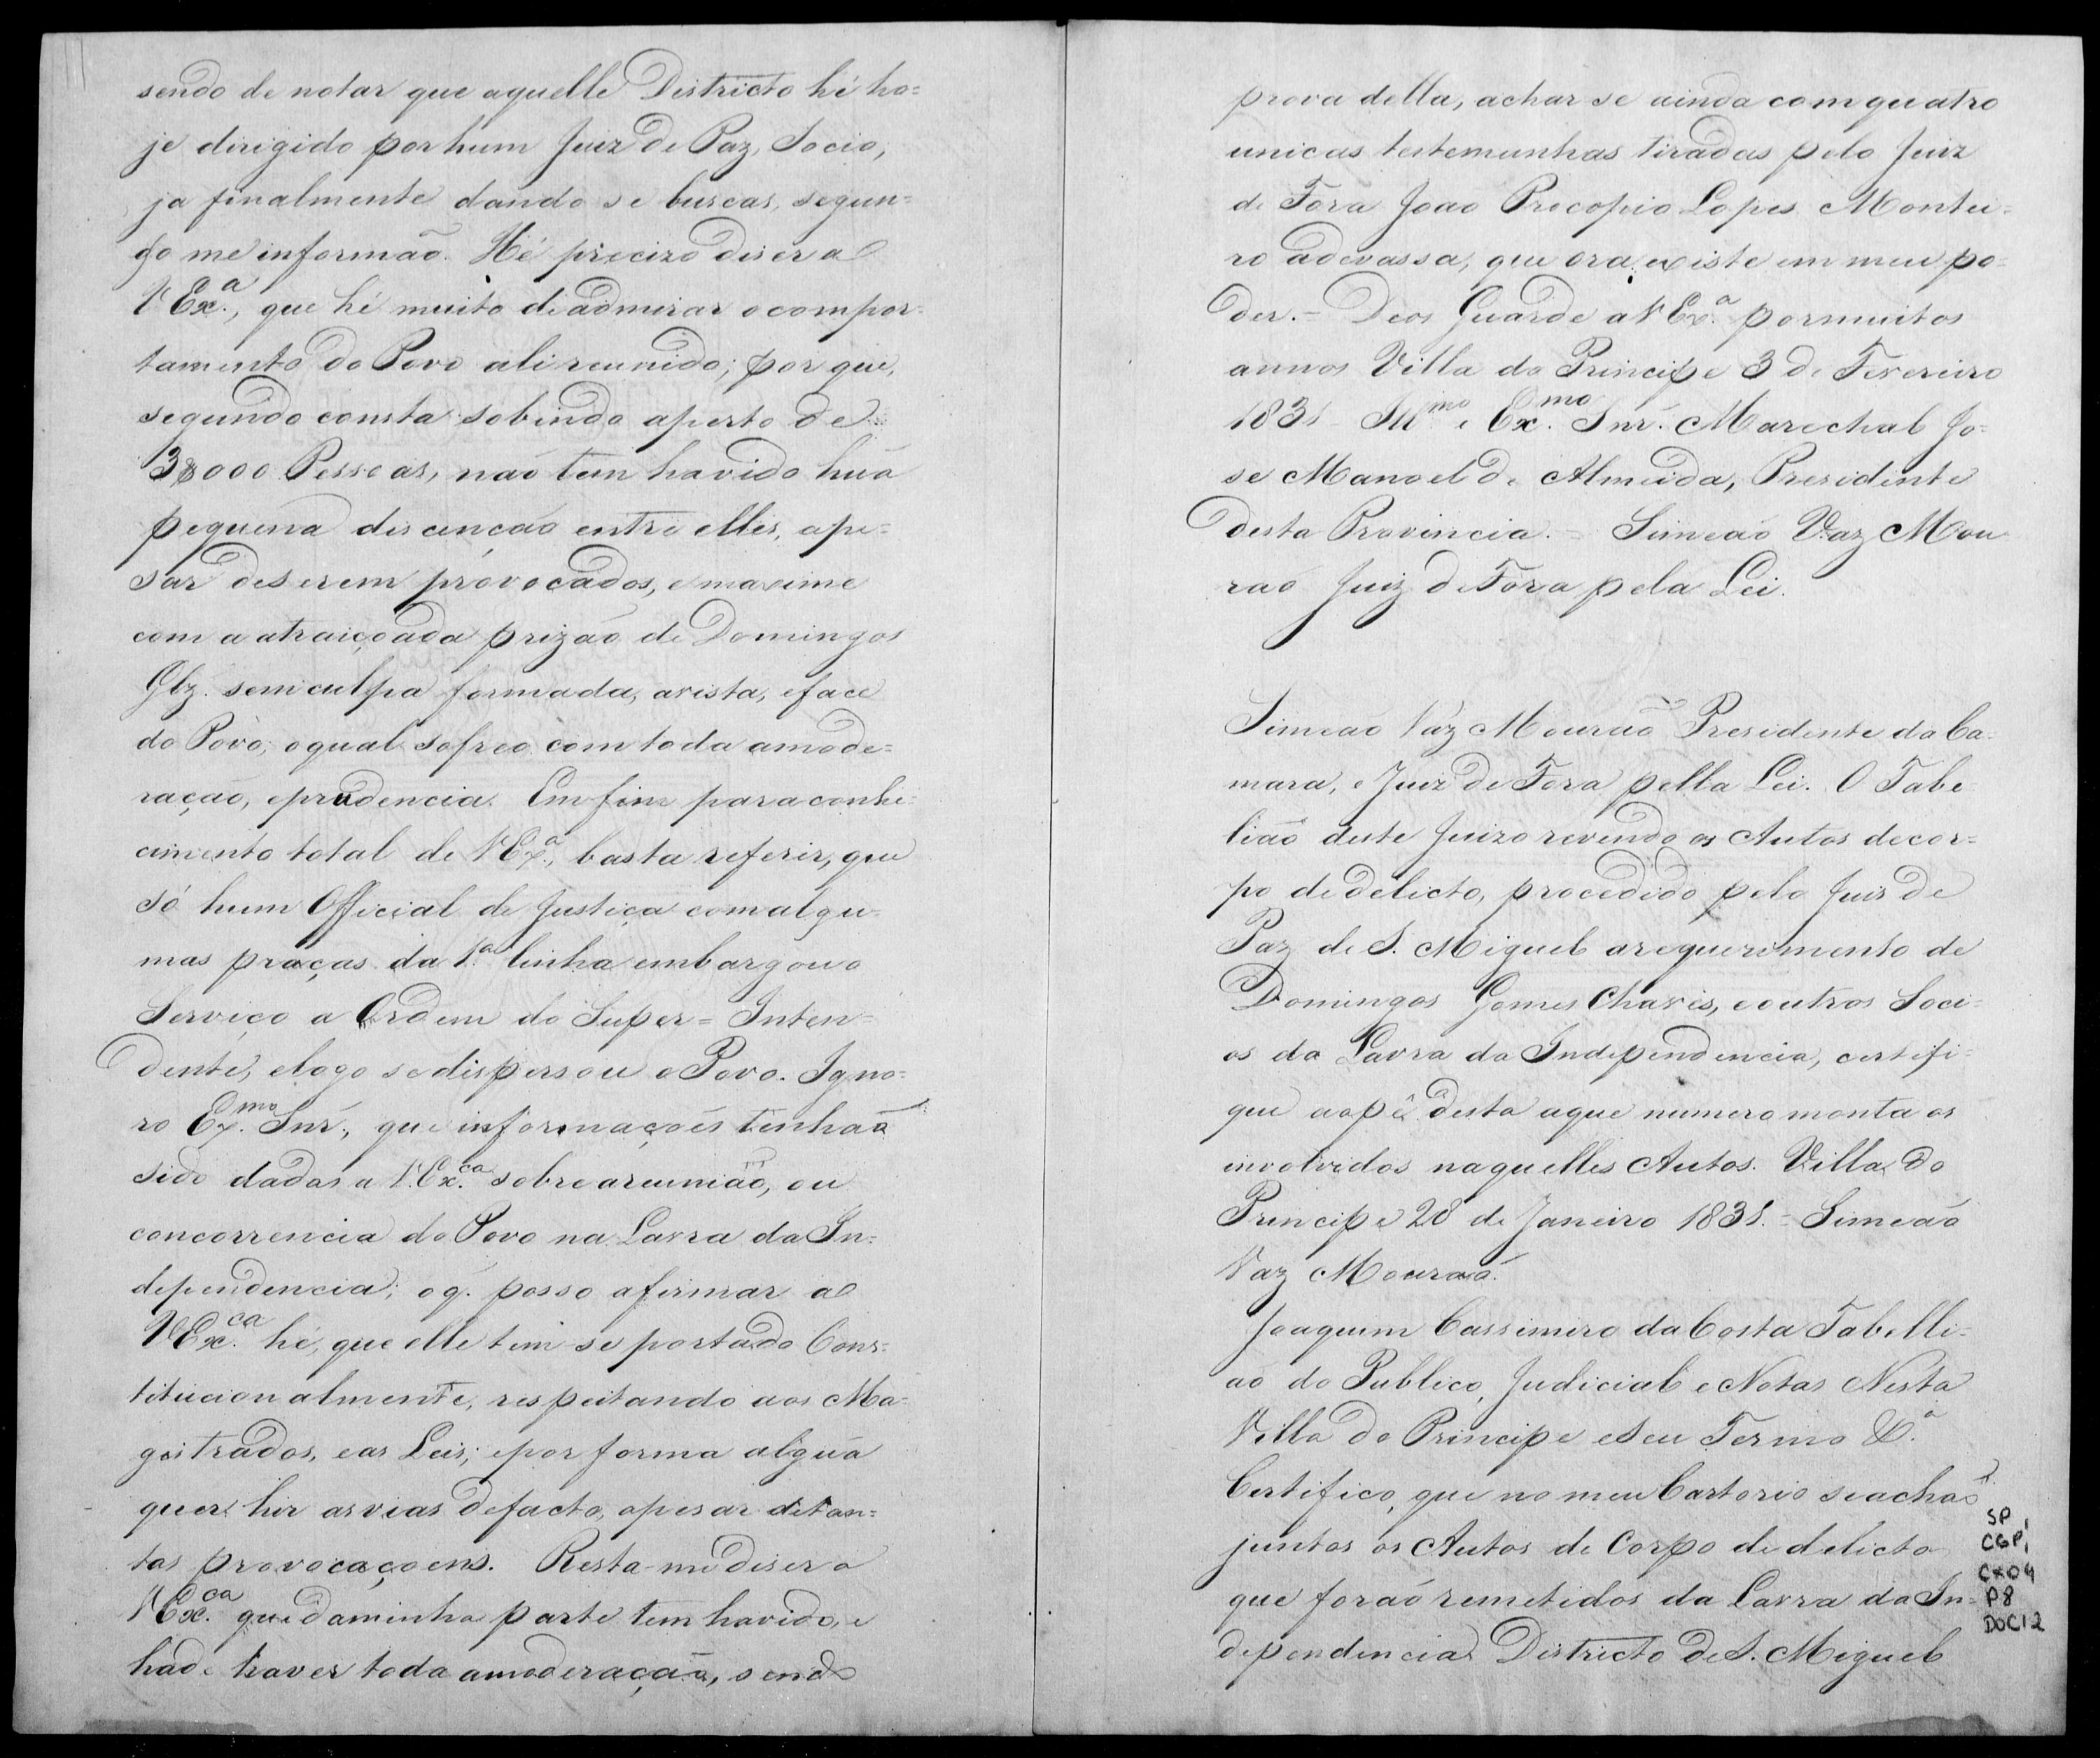 sendo de notar que aquelle Districto hé ho=
je dirigido por hum Juiz de Paz, Socio,
ja finalmente dando se buscas, segun=
do me informão. Hé precizo diser a
VEx.ª, que hé muito de admirar o compor=
tamento do Povo ali reunido; por que,
segundo consta sobindo aperto de
38000 Pessoas, não tem havido huã
pequena discenção entre elles, ape=
sar deserem provocados, e maxime
com a atraiçoada prizão de Domingos
Glz. sem culpa formada, avista, eface
do Povo; oqual sofreo com toda amode=
ração, eprudencia. Em fim para conhe=
cimento total de VExª, basta referir, que
só hum Official de Justiça com algu=
mas praças da 1.ª linha embargou o
Serviço a Ordem do Super=Inten=
dente, elogo sedispersou o Povo. Igno=
ro Ex.mo Snr., que informaçoēs tenhaõ
sido dadas a V.Ex.ca sobre areunião, ou
concorrencia do Povo na Lavra da In=
dependencia; o q. posso afirmar a
VEx.ca hé, que elle tem se portado Cons=
titucionalmente, respeitando aos Ma=
gistrados, eas Leis; epor forma alguã
quer hir as vias defacto, apesar detan=
tas provocaçoens. Resta-me diser a
VEx.ca que daminha parte tem havido, e
hade haver toda amoderação, sendo
prova della, achar se ainda com quatro
unicas testemunhas tiradas pelo Juiz
de Fora João Procopio Lopes Montei=
ro adevassa, que ora existe em meu po=
der.= Deos Guarde a VEx.ª por muitos
annos Villa do Principe 3 de Fevereiro
1831 Illmo e Ex.mo Snr. Marechal Jo=
se Manoel de Almeida, Presidente
desta Provincia. = Simeão Vaz Mou
rão Juiz de Fora pela Lei.
Simeão Vaz Mourão Presidente da Ca=
mara, e Juiz de Fora pella Lei. O Tabe
lião deste Juizo revendo os Autos decor=
po de delicto, procedido pelo Juis de
Paz de S. Miguel arequerimento de
Domingos Gomes Chaves, eoutros Soci=
os da Lavra da Independencia, certifi=
que aopé desta aque numero monta os
involvidos naquelles Autos. Villa do
Principe 28 de Janeiro 1831.= Simeão
Vaz Mourão.
Joaquim Cassimiro da Costa Tabelli=
ão do Publico, Judicial e Notas Nesta
Villa do Principe eSeu Termo &ª
Certifico, que no meu Cartorio seachaõ
juntos os Autos de Corpo de delicto
que forão remetidos da Lavra da In=
dependencia Districto de S. Miguel
SP
CGP1
CX04
P8
DOC12